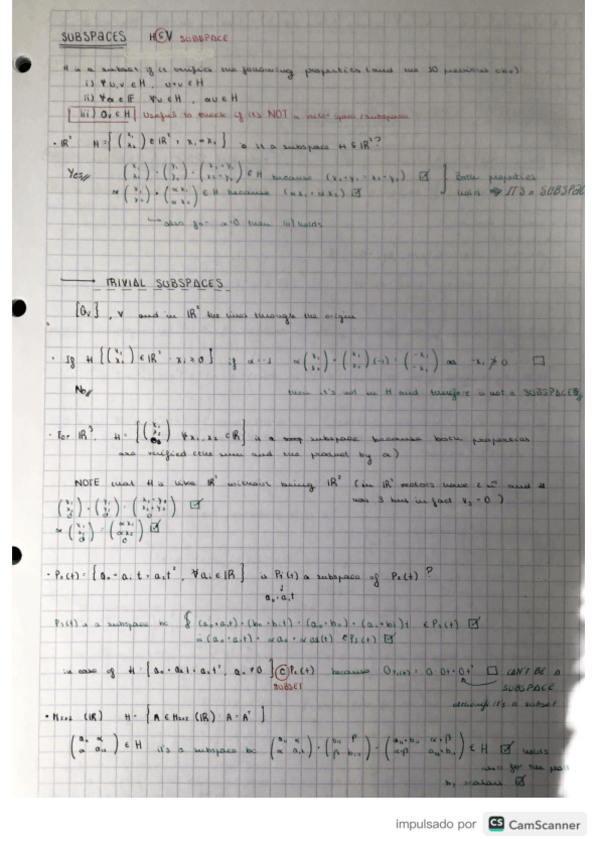 SUBSPACES H⊆V SUBSPACE
H is a subset if it verifies the following properties (and the 10 previous one)
i) ∀ u,v ∈ H, u+v ∈ H
ii) ∀α ∈ F ∀u ∈ H, αu ∈ H
iii) 0v ∈ H Useful to check if its NOT a vector space/subspace
· IR² H = {(x₁ x₂) ∈ IR² , x₁ = x₂} is it a subspace H ⊆ IR²?
Yes// (x₁ x₂) + (y₁ y₂) = (x₁+y₁ x₂+y₂) ∈ H because (x₁+y₁ = x₂+y₂) ☑ Both properties
α (x₁ x₂) = (αx₁ αx₂) ∈ H because (αx₁ = αx₂) ☑ holds ⇒ IT'S a SUBSPACE
also for α=0 then iii) holds
→ TRIVIAL SUBSPACES
{0v}, V and in IR² the lines through the origin
· If H {(x₁ x₂) ∈ IR² x₁ ≥ 0} if α=-1 α(x₁ x₂) = (x₁ x₂)(-1) = (-x₁ -x₂) -x₁ ≱ 0 ☐
No// then it's not in H and therefore is not a SUBSPACE//
· For IR³. H = {(x₁ x₂ 0) ∀ x₁, x₂ ∈ IR} is a subspace because both properties
are verified (the sum and the product by α)
NOTE that H is like IR² without being IR² (in IR² vectors have 2 and H
has 3 but in fact x₃ = 0)
(x₁ x₂ 0) + (y₁ y₂ 0) = (x₁+y₁ x₂+y₂ 0) ☑
α (x₁ x₂ 0) = (αx₁ αx₂ 0) ☑
· P₂(t) = {a₀ + a₁t + a₂t², ∀aᵢ ∈ IR} is P₁(t) a subspace of P₂(t)?
a₀ + a₁t
P₁(t) is a subspace bc (a₀+a₁t) + (b₀+b₁t) = (a₀+b₀) + (a₁+b₁)t ∈ P₁(t) ☑
α(a₀+a₁t) = αa₀ + αa₁(t) ∈ P₁(t) ☑
in case of H = {a₀ + a₁t + a₂t², a₂ ≠ 0} ⊂ P₂(t) because 0+0t+0t² ☐ CAN'T BE A
SUBSET SUBSPACE
although it's a subset
· M₂ₓ₂ (IR) H = {A ∈ M₂ₓ₂ (IR) A = Aᵀ}
(a₁₁ α α a₂₂) ∈ H it's a subspace bc (a₁₁ α α a₂₂) + (b₁₁ β β b₂₂) = (a₁₁+b₁₁ α+β α+β a₂₂+b₂₂) ∈ H ☑ holds
for the
by scalars ☑
impulsado por CS CamScanner